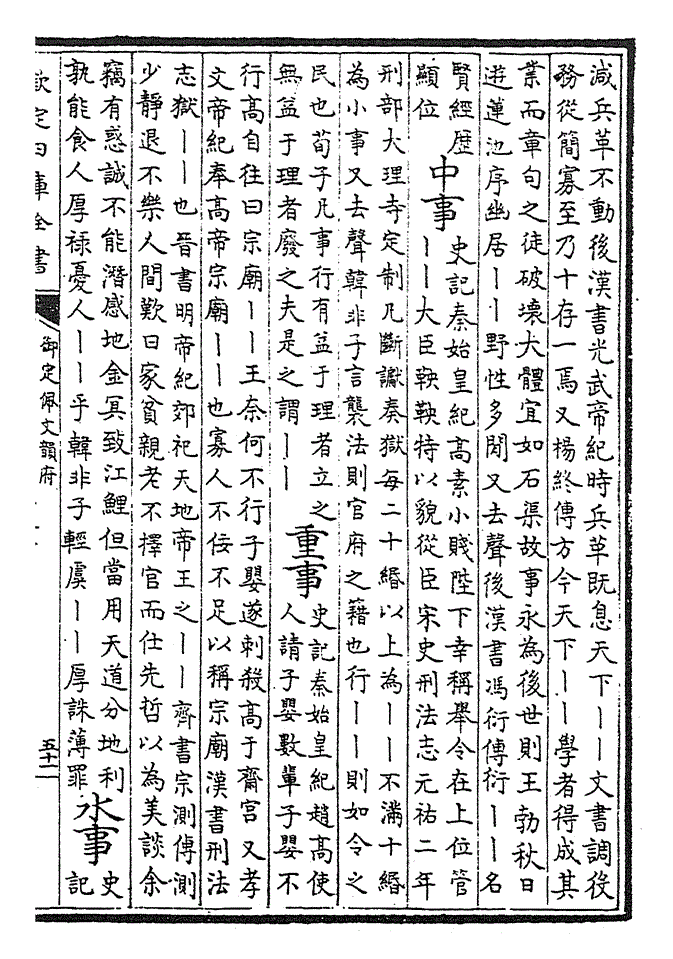 減兵革不動後漢書光武帝紀時兵革既息天下丨丨文書調役
務從簡寡至乃十存一焉又楊終傳方今天下丨丨學者得成其
業而章句之徒破壞大體宜如石渠故事永為後世則王勃秋日
遊蓮池序幽居丨丨野性多閒又去聲後漢書馮衍傳衍丨丨名
賢經歴
顯位
中事
史記秦始皇紀高素小賤陛下幸稱舉令在上位管
丨丨大臣鞅鞅特以貌從臣宋史刑法志元祐二年
刑部大理寺定制凡斷讞奏獄每二十緡以上為丨丨不滿十緡
為小事又去聲韓非子言襲法則官府之籍也行丨丨則如令之
民也荀子凡事行有益于理者立之
無益于理者廢之夫是之謂丨丨
重事
史記秦始皇紀趙高使
人請子嬰數輩子嬰不
行高自往曰宗廟丨丨王奈何不行子嬰遂刺殺高于齋宮又孝
文帝紀奉高帝宗廟丨丨也寡人不佞不足以稱宗廟漢書刑法
志獄丨丨也晉書明帝紀郊祀天地帝王之丨丨齊書宗測傳測
少靜退不樂人間歎曰家貧親老不擇官而仕先哲以為美談余
竊有惑誠不能潛感地金冥致江鯉但當用天道分地利
孰能食人厚禄憂人丨丨乎韓非子輕虞丨丨厚誅薄罪
水事
史
記
欽定四庫全書
御定佩文韻府